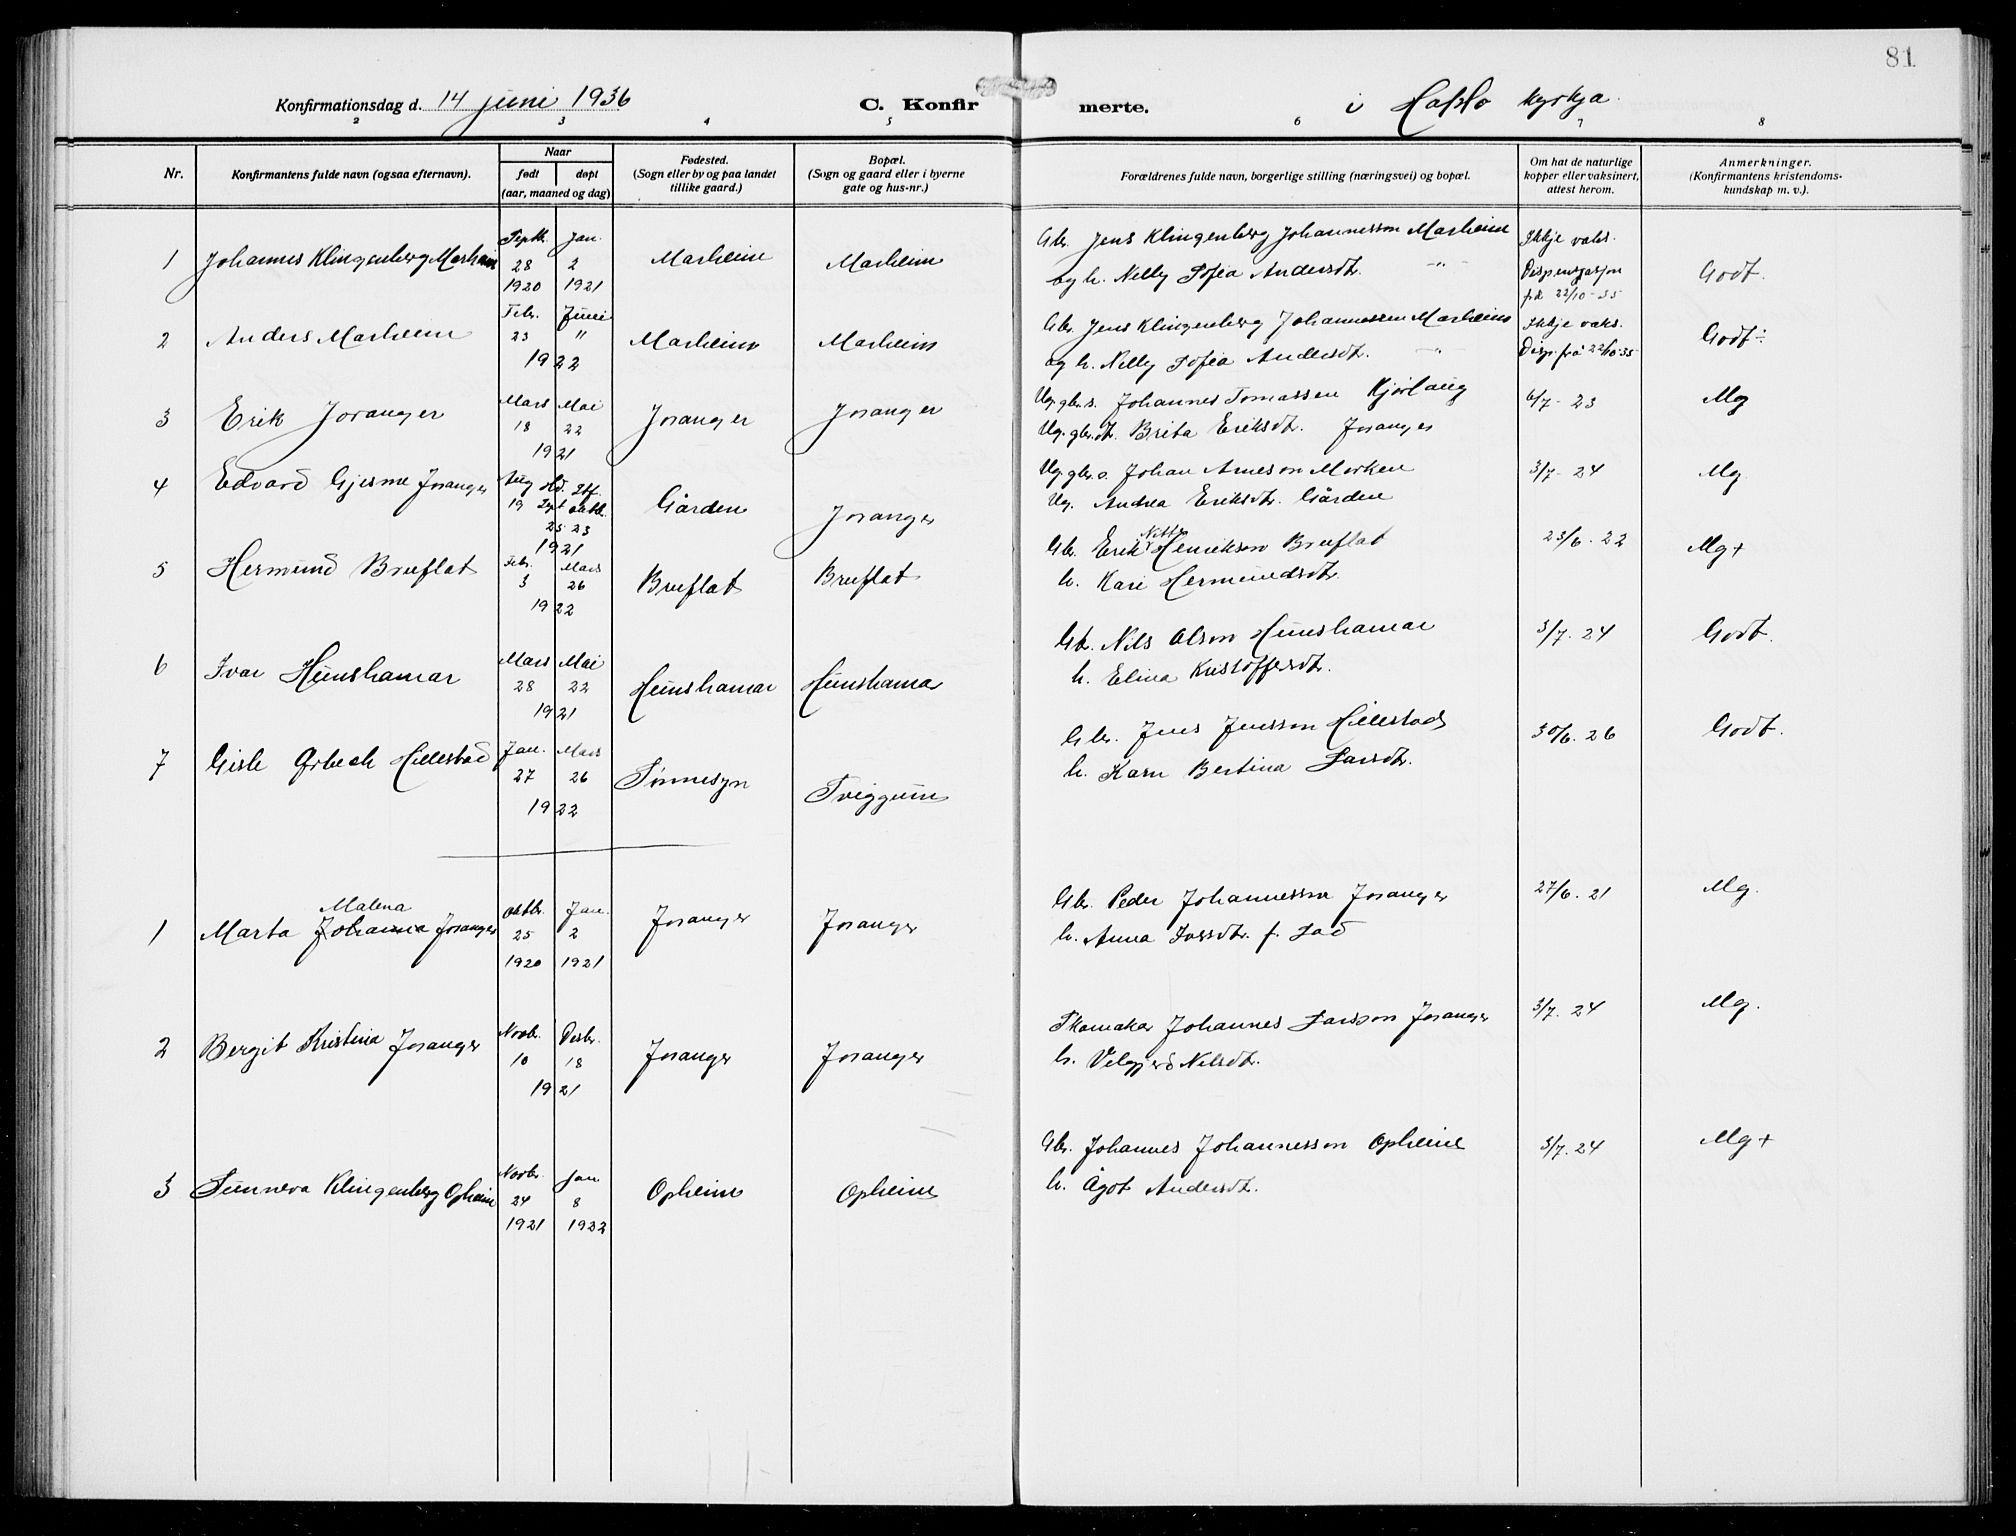 81
Konfirmationsdag d. 14 juni 1936 C. Konfirmerte. i Hafslo kyrkja.
2 3 4 5 6 7 8
Nr. Konfirmantens fulde navn (ogsaa efternavn). Naar født døpt (aar, maaned og dag) Fødested. (Sogn eller by og paa landet tillike gaard.) Bopæl. (Sogn og gaard eller i byerne gate og hus-nr.) Forældrenes fulde navn, borgerlige stilling (næringsvei) og bopæl. Om hat de naturlige kopper eller vaksinert, attest herom. Anmerkninger. (Konfirmantens kristendomskundskap m. v.).
1 Johannes Klingenberg Marheim Septb. 28 1920 Jan. 2 1921 Marheim Marheim Gbr. Jens Klingenberg Johannesson Marheim Ikkje vaks. Godt.
og h. Nelly Sofia Andersdt. -"- Dispensasjon frå 22/10-35
2 Anders Marheim Febr. 23 Juni " 1922 Marheim Marheim Gbr. Jens Klingenberg Johannessen Marheim Ikkje vaks. Godt÷
og h. Nelly Sofia Andersdt. -"- Disp. frå 22/10-35
3 Erik Joranger Mars 18 Mai 22 1921 Joranger Joranger Ug. gbr.s. Johannes Tomassen Kjørlaug 6/7-23 Mg
Ug. gbr.dt. Brita Eriksdt. Joranger
4 Edvard Gjerme Joranger Aug 19 oktb. 23 1921 Gården Joranger Ug. gbr.s. Johan Arneson Morken 3/7-24 Mg
Ug. Andrea Eriksdt. Gården
5 Hermund Bruflat Febr. 3 Mars 26 1922 Bruflat Bruflat Gbr. Erik Henrikson Bruflat 23/6.22 Mg+
h. Kari Hermundsdt.
6 Ivar Heimshamar Mars 28 Mai 22 1921 Heimshamar Heimshamar Gbr. Nils Olson Heimshamar 3/7.24 Godt.
h. Elina Kristoffersdt.
7 Gisle Ørbech Hillestad Jan. 27 Mars 26 1922 Sønnesyn Tviggum Gbr. Jens Jensson Hillestad 30/6.26 Godt.
h. Kasn Bertina Larsdt.
1 Marta Malena Johanna Joranger oktbr. 25 1920 Jan. 2 1921 Joranger Joranger Gbr. Peder Johannesson Joranger 27/6.21 Mg.
h. Anna Iversdt. f. Lad
2 Bergit Kristina Joranger Novbr. 10 Desbr. 18 1921 Joranger Joranger Skomakar Johannes Larsson Joranger 3/7.24 Mg.
h. Velgjerd Nilsdt.
3 Sunneva Klingenberg Opheim Novbr. 24 1921 Jan 8 1922 Opheim Opheim Gbr. Johannes Johannesson Opheim 3/7.24 Mg+
h. Ågot Andersdt.